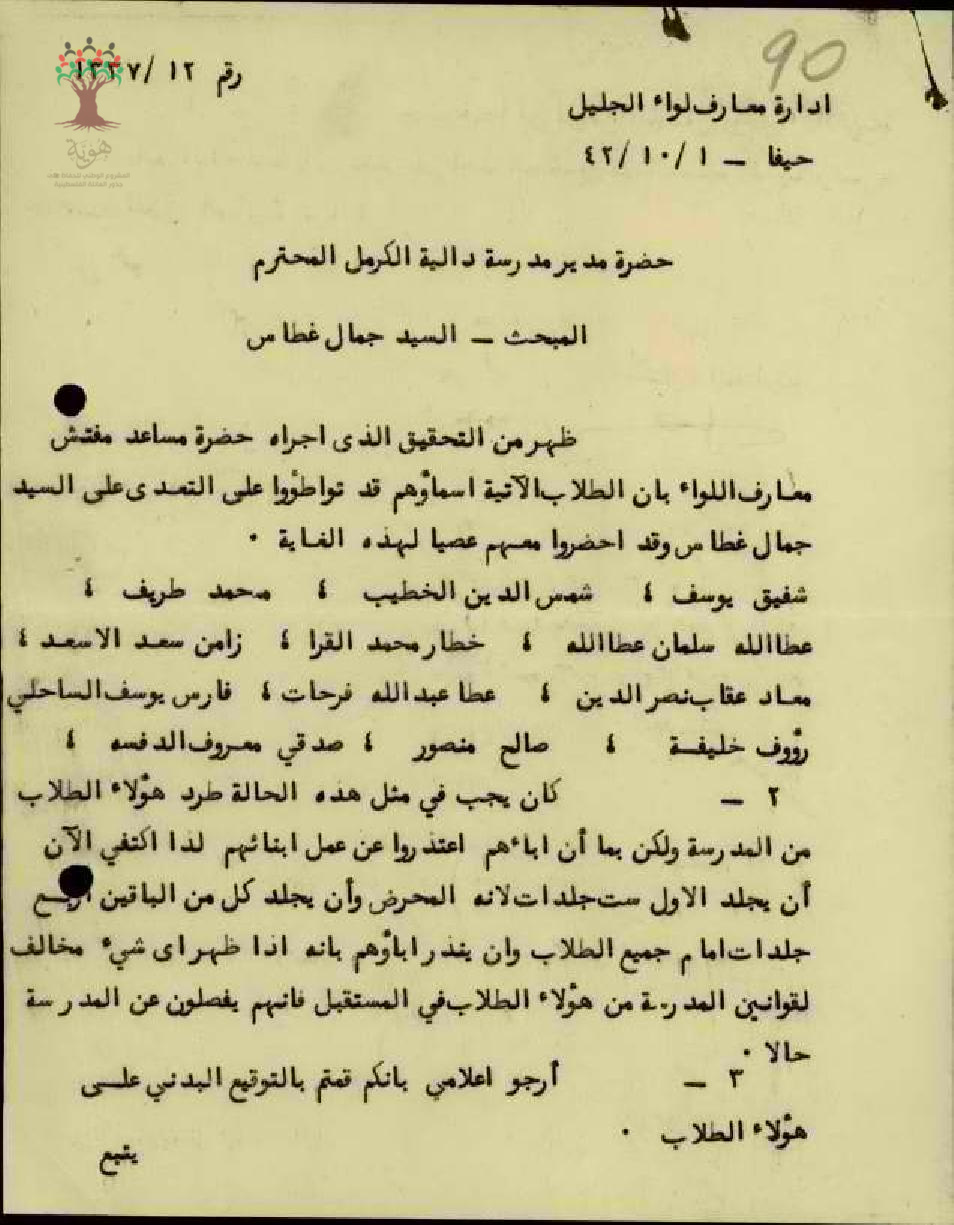 90
رقم ١٢ /١٣٣٧
ادارة معارف لواء الجليل
حيفا – ١ /١٠ /٤٢
هوية
حضرة مدير مدرسة دالية الكرمل المحترم
المبحث – السيد جمال غطاس
ظهر من التحقيق الذى اجراه حضرة مساعد مفتش
معارف اللواء بان الطلاب الآتية اسماؤهم قد تواطؤوا على التعدى على السيد
جمال غطاس وقد احضروا معهم عصيا لهذه الغاية .
شفيق يوسف ؛ شمس الدين الخطيب ؛ محمد طريف ؛
عطاالله سلمان عطاالله ؛ خطار محمد القرا ؛ زامن سعد الاسعد ؛
معاد عقاب نصر الدين ؛ عطا عبدالله فرحات ؛ فارس يوسف الساحلي
رؤوف خليفة ؛ صالح منصور ؛ صدقي معروف الدفسه ؛
٢ – كان يجب في مثل هذه الحالة طرد هؤلاء الطلاب
من المدرسة ولكن بما أن اباءهم اعتذروا عن عمل ابنائهم لذا اكتفي الآن
أن يجلد الاول ست جلدات لانه المحرض وأن يجلد كل من الباقين اربع
جلدات امام جميع الطلاب وان ينذر اباؤهم بانه اذا ظهر اى شيء مخالف
لقوانين المدرسة من هؤلاء الطلاب في المستقبل فانهم يفصلون عن المدرسة
حالا .
٣ – أرجو اعلامي بانكم قمتم بالتوقيع البدني على
هؤلاء الطلاب .
يتبع